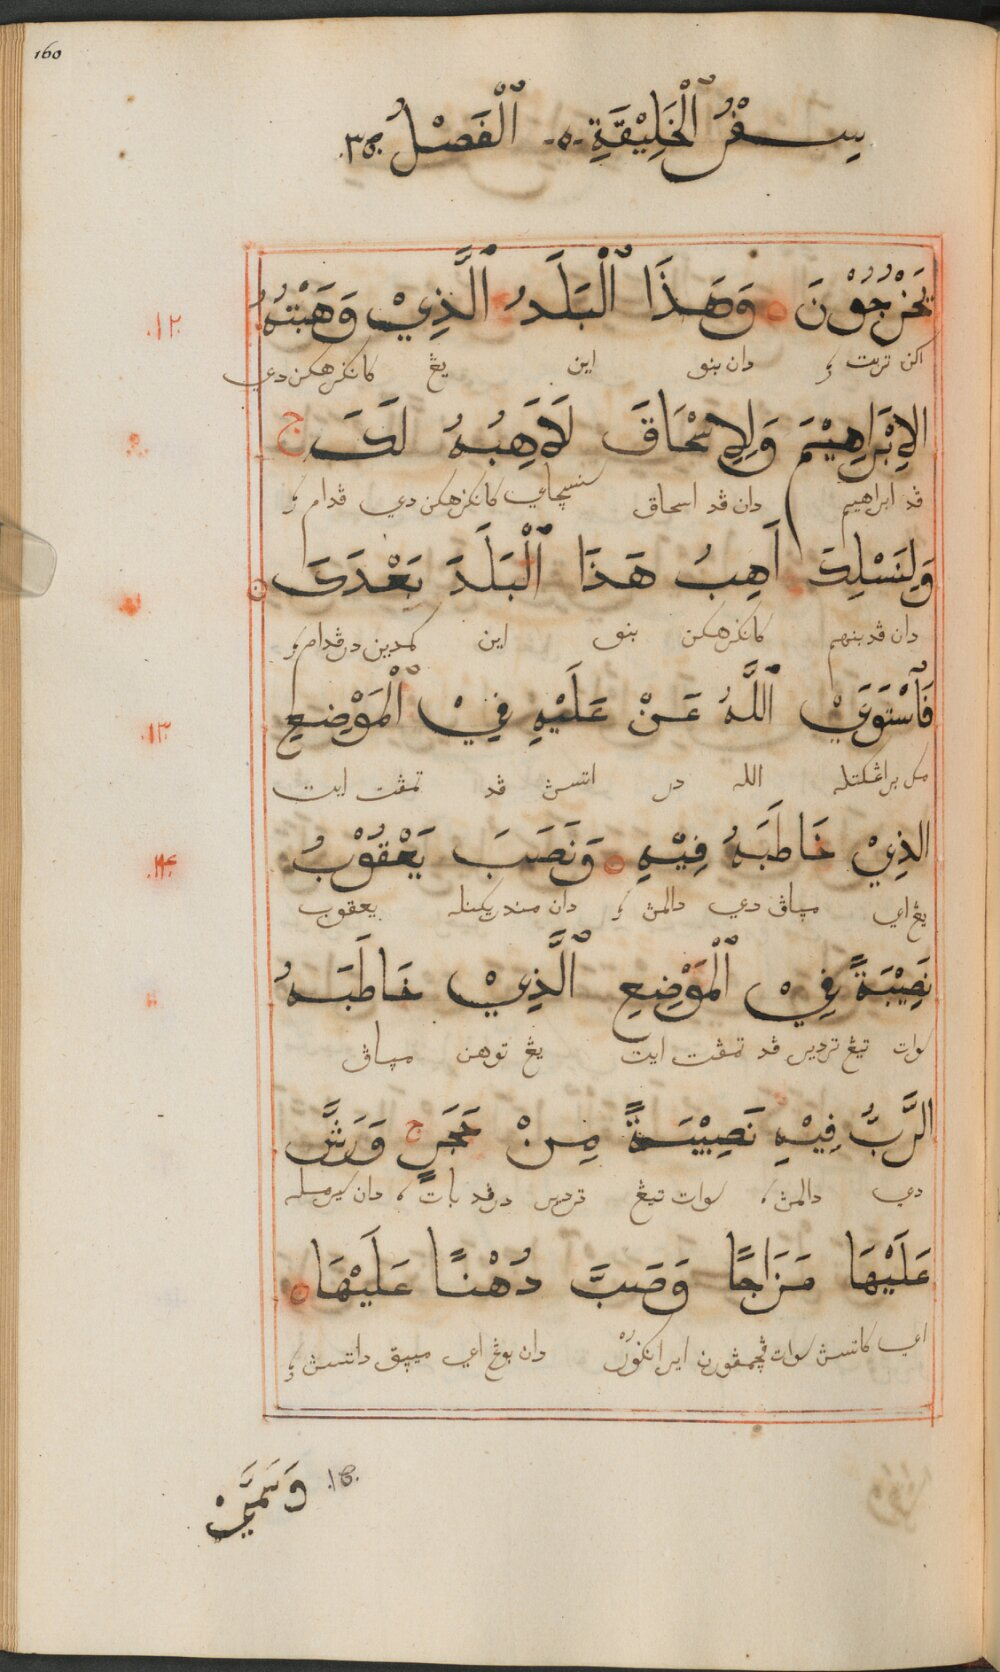 160
سِفْرُ ٱلْخَلِيْقَةِ -٥- ٱلْفَصْلُ ٣٥.
يَخْرُجُوْنَ وَهَذَا ٱلْبَلَدُ ٱلَّذِيْ وَهَبْتُهُ
.١٢.
اكن تربت دان بنو اين يڠ كانكرهكن دي
الِإبْرَاهِيْمَ وَلِإِسْحَاقَ لَأَهِبُهُ لَكَ ج
ڤد ابراهيم دان ڤد اسحاق كانكرهكن دي ڤدام
وَلِنَسْلِكَ أَهِبُ هَذَا ٱلْبَلَدَ بَعْدَكَ
دان ڤد بنهم كانكرهكن بنو اين كمدين در ڤدام
فَٱسْتَوَيْ ٱللَّهُ عَنْ عَلَيْهِ فِيْ ٱلْمَوْضِعِ
.١٣.
مك براڠكتله الله در اتسڽ ڤد تمڤت ايت
الذِيْ خَاطَبَهُ فِيْهِ وَنَصَبَ يَعْقُوْبُ
.١٤.
يڠ اي دي دالمڽ دان منديريكنله يعقوب
نَصِيْبَةً فِيْ ٱلْمَوْضِعِ ٱلَّذِيْ خَاطَبَهُ
سوات تيڠ ترديرس ڤد تمڤت ايت يڠ توهن
الرَّبُّ فِيْهِ نَصِيْبَةً مِنْ حَجَرٍ ج وَرَشَّ
دي دالمڽ سوات تيڠ در ڤد بات دان
عَلَيْهَا مَزَاجًا وَصَبَّ دُهْنًا عَلَيْهَا
اي كاتسڽ سوات اير اڠݢور دان بوڠ اي ميپق داتسڽ
.١٥. وَسَمَّيْ